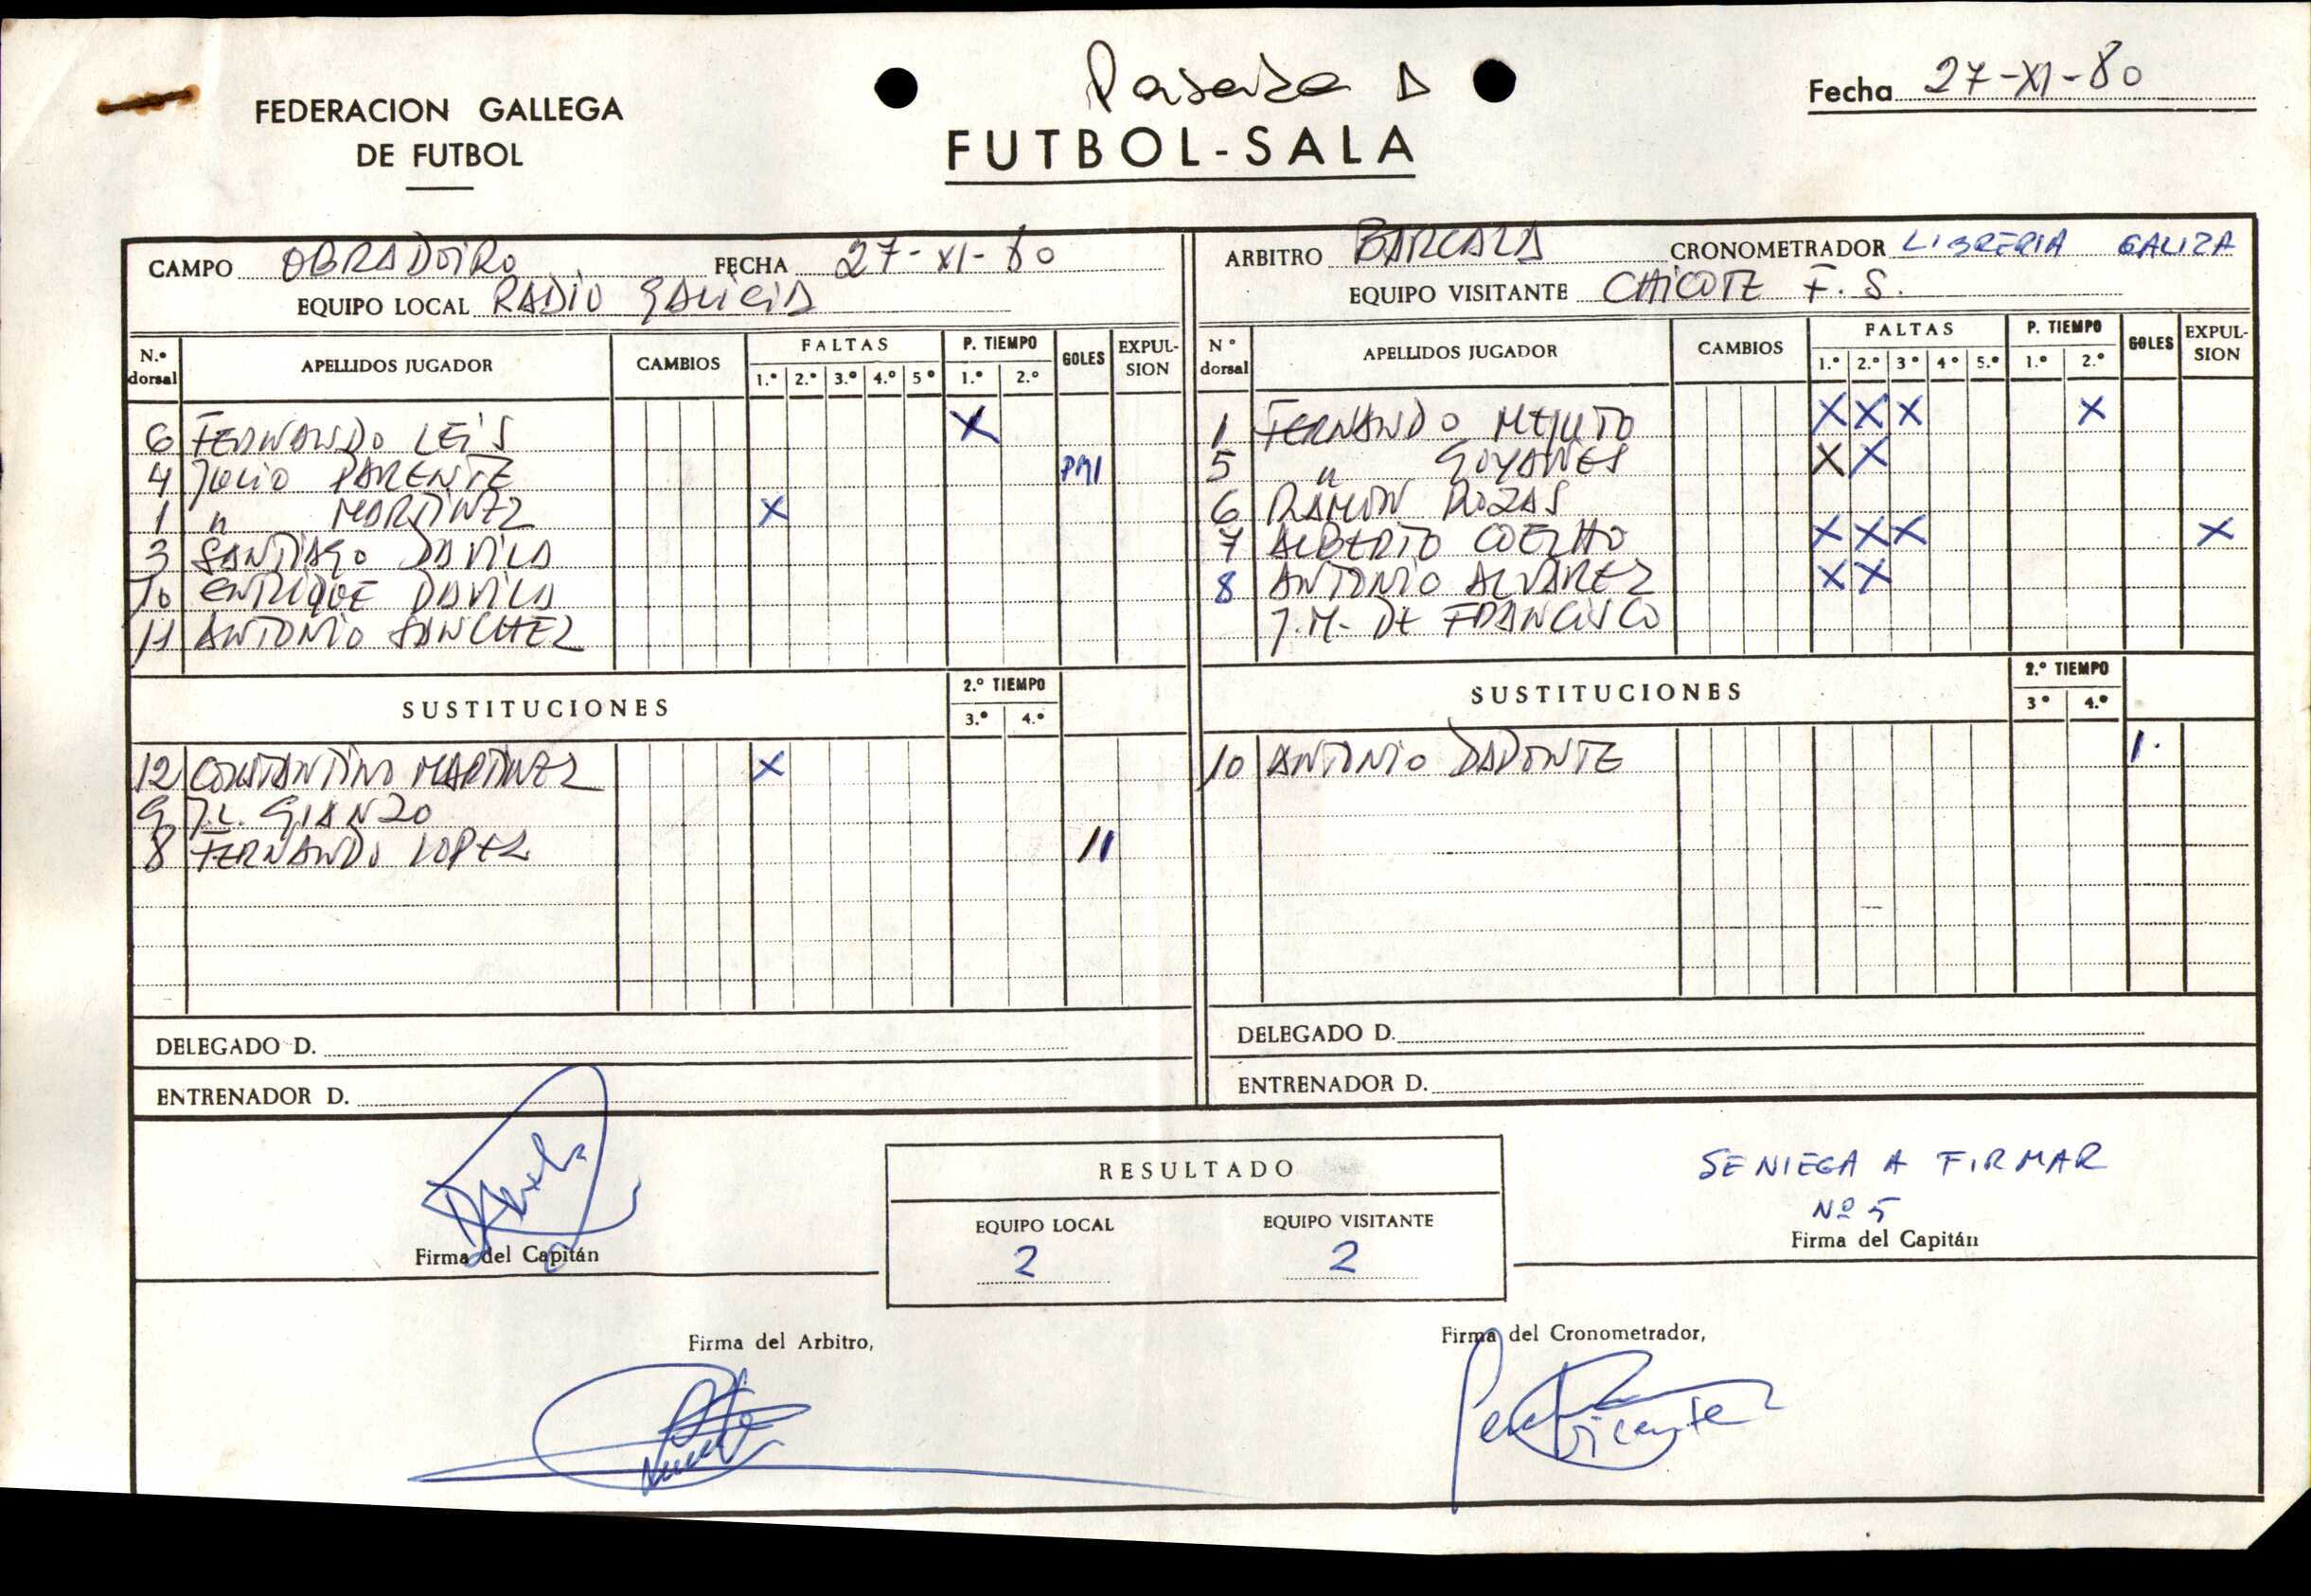 FEDERACION GALLEGA
DE FUTBOL
FUTBOL-SALA
Fecha 27-XI-80
CAMPO OBRADOIRO FECHA 27-XI-80
EQUIPO LOCAL RADIO GALICIA
ARBITRO BARCALA CRONOMETRADOR LIBRERIA GALIZA
EQUIPO VISITANTE CHICOTE F.S.
N.º dorsal APELLIDOS JUGADOR CAMBIOS FALTAS 1.º 2.º 3.º 4.º 5º P. TIEMPO 1.º 2.º GOLES EXPULSION
6 FERNANDO LEIS X
4 JULIO PARENTE
1 " MARTINEZ X
3 SANTIAGO DAVILA
10 ENRIQUE DAVILA
11 ANTONIO SANCHEZ
SUSTITUCIONES 2.º TIEMPO 3.º 4.º
12 CONSTANTINO MARTINEZ X
9 J.L. GIANZO
8 FERNANDO LOPEZ 11
DELEGADO D.
ENTRENADOR D.
N º dorsal APELLIDOS JUGADOR CAMBIOS FALTAS 1.º 2.º 3º 4º 5.º P. TIEMPO 1.º 2.º GOLES EXPULSION
1 FERNANDO MEJUTO X X X X
5 " GOYANES X X
6 RAMON ROZAS
7 ALBERTO COELHO X X X X
8 ANTONIO ALVAREZ X X
J.M. DE FRANCISCO
SUSTITUCIONES 2.º TIEMPO 3º 4.º
10 ANTONIO 1
DELEGADO D.
ENTRENADOR D.
Firma del Capitán
RESULTADO
EQUIPO LOCAL EQUIPO VISITANTE
2 2
SE NIEGA A FIRMAR
Nº 5
Firma del Capitán
Firma del Arbitro,
Firma del Cronometrador,
Vicente